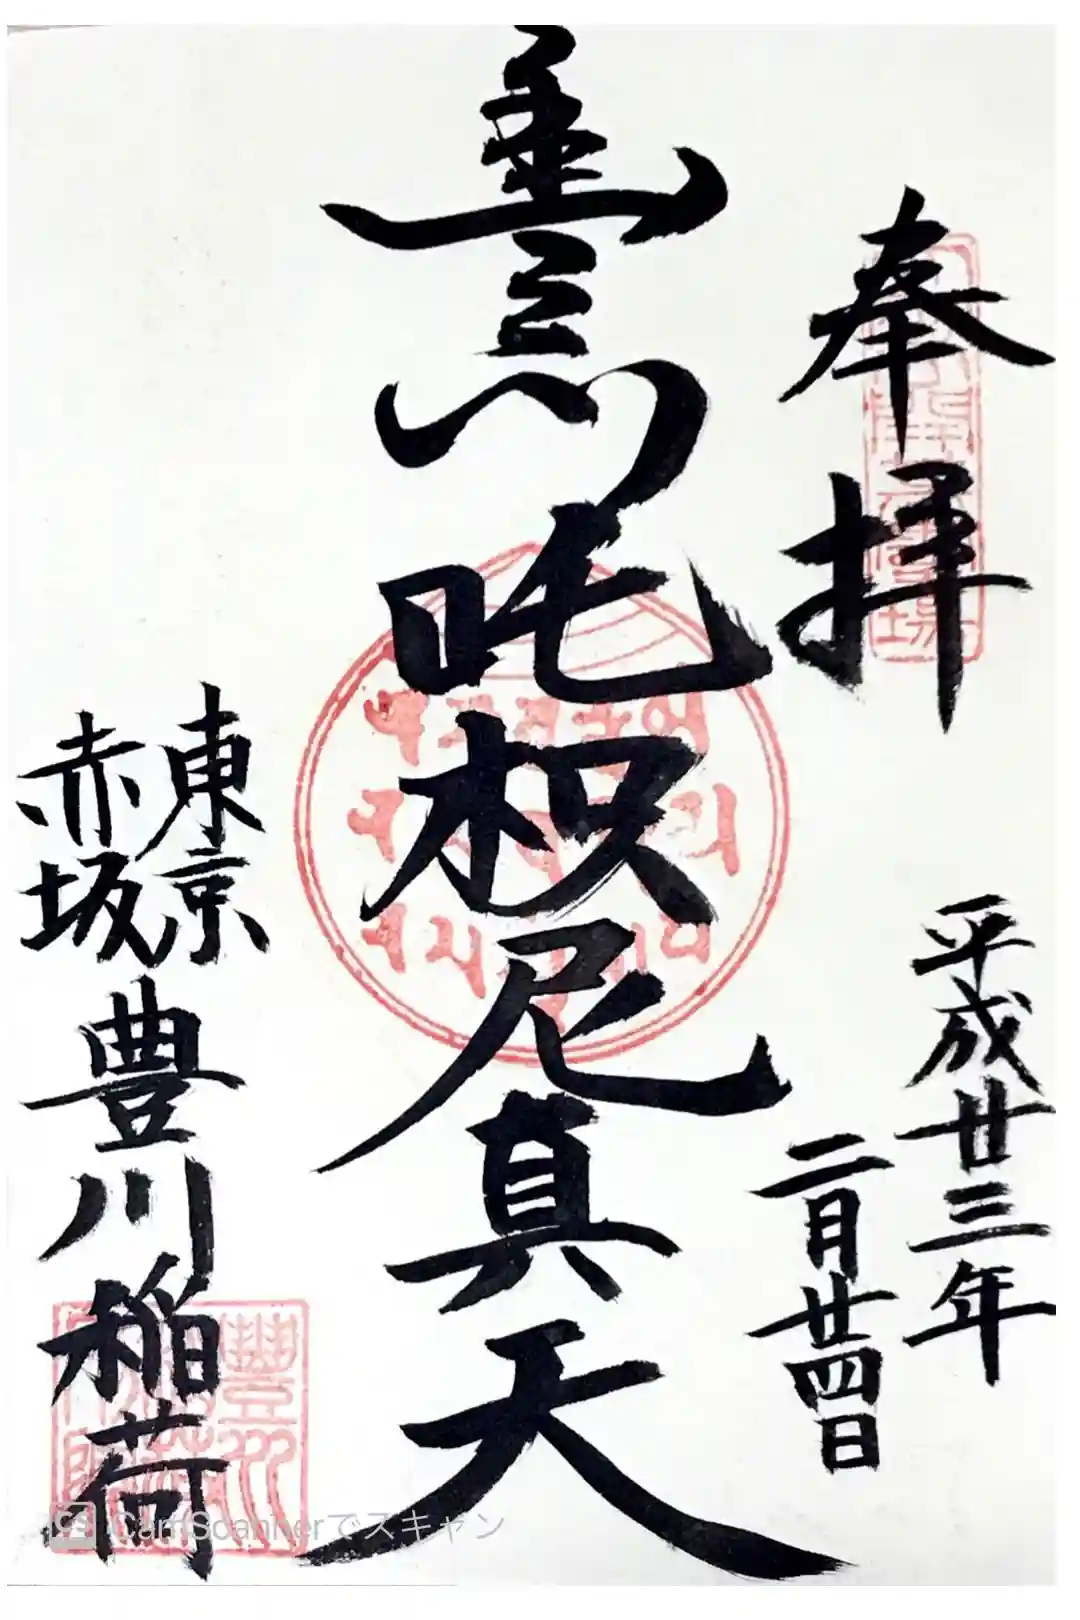 奉拝
平成廿三年
二月廿四日
吒枳尼真天
東京
赤坂
豊川稲荷
CS CamScannerでスキャン